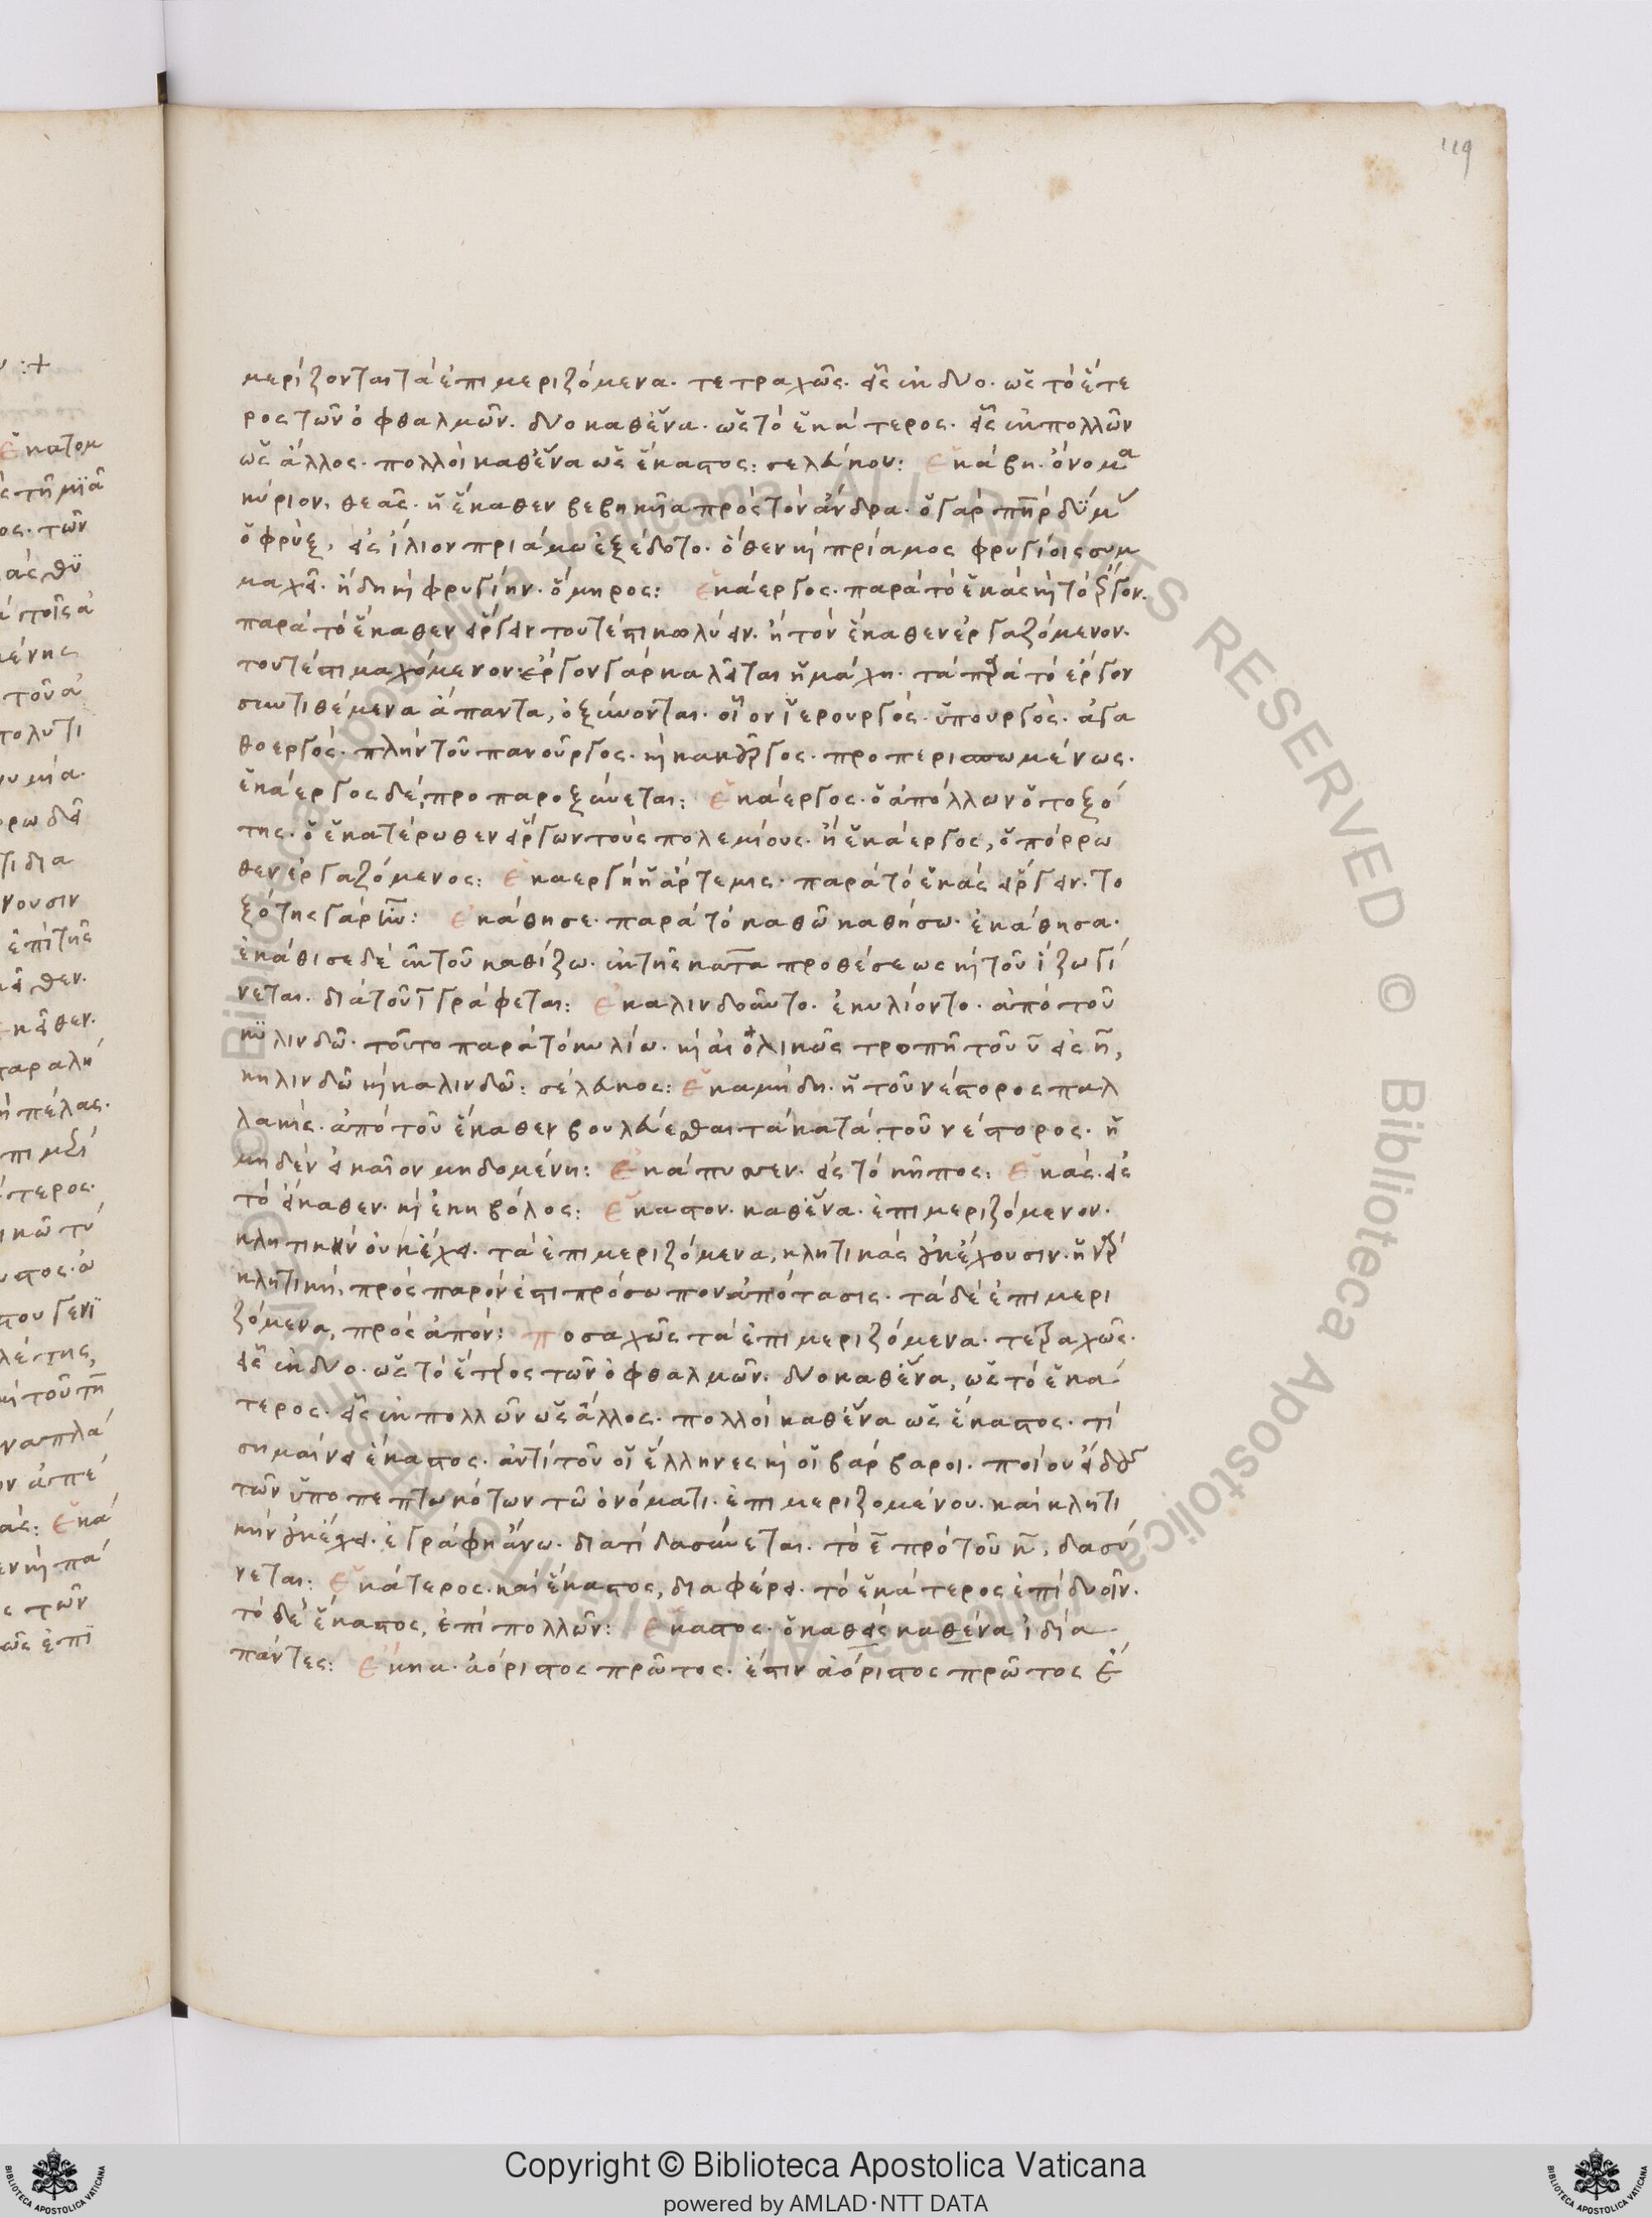 119
μερίζονται τὰ ἐπιμεριζόμενα. τετραχῶς. εἷς ἐκ δύο. ὡς τὸ ἕτε
ρος τῶν ὀφθαλμῶν. δύο καθ' ἕνα. ὡς τὸ ἑκάτερος. εἷς ἐκ πολλῶν
ὡς ἄλλος. πολλοὶ καθ' ἕνα ὡς ἕκαστος: σελεύκου: Ἑκάβη. ὄνομα
κύριον. θεᾶς. ἡ ἕκαθεν βεβηκῦια πρὸς τὸν ἄνδρα. ὁ γὰρ πηρ δύμ
ὁ φρὺξ, εἰς ἴλιον πριάμω ἐξέδοτο. ὅθεν καὶ πρίαμος φρυγίοις συμ
μαχεῖ. ἤδη καὶ φρυγίην. ὅμηρος: Ἑκάεργος. παρὰ τὸ ἑκὰς καὶ τὸ ἔργον.
παρὰ τὸ ἕκαθεν εἴργειν τουτέστι κωλύειν. ἢ τὸν ἕκαθεν ἐργαζόμενον.
τουτέστι μαχόμενον: ἔργον γὰρ καλεῖται ἡ μάχη. τὰ παρὰ τὸ ἔργον
συντιθέμενα ἅπαντα, ὀξύνονται. οἷον ἱερουργός. ὑπουργός. ἀγα
θοεργός. πλὴν τοῦ πανοῦργος. καὶ κακοῦργος. προπερισπωμένως.
ἑκάεργος δὲ, προπαροξύνεται: Ἑκάεργος. ὁ ἀπόλλων ὁ τοξό
της. ὁ ἑκατέρωθεν εἴργων τοὺς πολεμίους. ἢ ἑκάεργος, ὁ πόρρω
θεν ἐργαζόμενος: Ἑκαεργὴ ἡ ἄρτεμις. παρὰ τὸ ἑκὰς εἴργειν. το
ξότης γὰρ ἦν: Ἐκάθησε. παρὰ τὸ καθῶ καθήσω. ἐκάθησα.
ἐκάθισε δὲ ἐκ τοῦ καθίζω. ἐκ τῆς κατα προθέσεως καὶ τοῦ ἵζω γί
νεται. διὰ τοῦ ι γράφεται: Ἐκαλινδοῦντο. ἐκυλίοντο. ἀπὸ τοῦ
κυλινδῶ. τοῦτο παρὰ τὸ κυλίω. καὶ αἰολικῶς τροπῆ τοῦ υ εἰς η,
κηλινδῶ καὶ καλινδῶ: σέλευκος: Ἑκαμήδη. ἡ τοῦ νέστορος παλ
λακίς. ἀπὸ τοῦ ἕκαθεν βουλεύεσθαι τὰ κατὰ τοῦ νέστορος. ἡ
μηδὲν εἰκαῖον μηδομένη: Ἐκάπυσεν. εἰς τὸ κῆπος: Ἑκάς. εἰς
τὸ ἕκαθεν. καὶ ἐκηβόλος: Ἕκαστον. καθ' ἕνα. ἐπιμεριζόμενον.
κλητικὴν οὐκ ἔχει. τὰ ἐπιμεριζόμενα, κλητικὰς οὐκ ἔχουσιν. ἡ γὰρ
κλητική, πρὸς παρόν ἐστι πρόσωπον ἀπότασις. τὰ δὲ ἐπιμερι
ζόμενα, πρὸς ἀπόν: ποσαχῶς τὰ ἐπιμεριζόμενα. τετραχῶς.
εἷς ἐκ δύο. ὡς τὸ ἕτερος τῶν ὀφθαλμῶν. δύο καθ' ἕνα, ὡς τὸ ἑκά
τερος. εἷς ἐκ πολλῶν ὡς ἄλλος. πολλοὶ καθ' ἕνα ὡς ἕκαστος. τί
σημαίνει ἕκαστος. ἀντὶ τοῦ οἱ ἕλληνες καὶ οἱ βάρβαροι. ποίου εἴδους
τῶν ὑποπεπτωκότων τῶ ὀνόματι. ἐπιμεριζομένου. καὶ κλητι
κὴν οὐκ ἔχει. ἐγράφη ἄνω. διατί δασύνεται. τὸ ε πρὸ τοῦ κ, δασύ
νεται: Ἑκάτερος. καὶ ἕκαστος, διαφέρει. τὸ ἑκάτερος ἐπὶ δυοῖν.
τὸ δὲ ἕκαστος, ἐπὶ πολλῶν: Ἕκαστος. ὁ καθεὶς καθένα ἰδία
πάντες: Ἔκηα. ἀόριστος πρῶτος. ἔστιν ἀόριστος πρῶτος ἔ
Copyright © Biblioteca Apostolica Vaticana
powered by AMLAD・NTT DATA